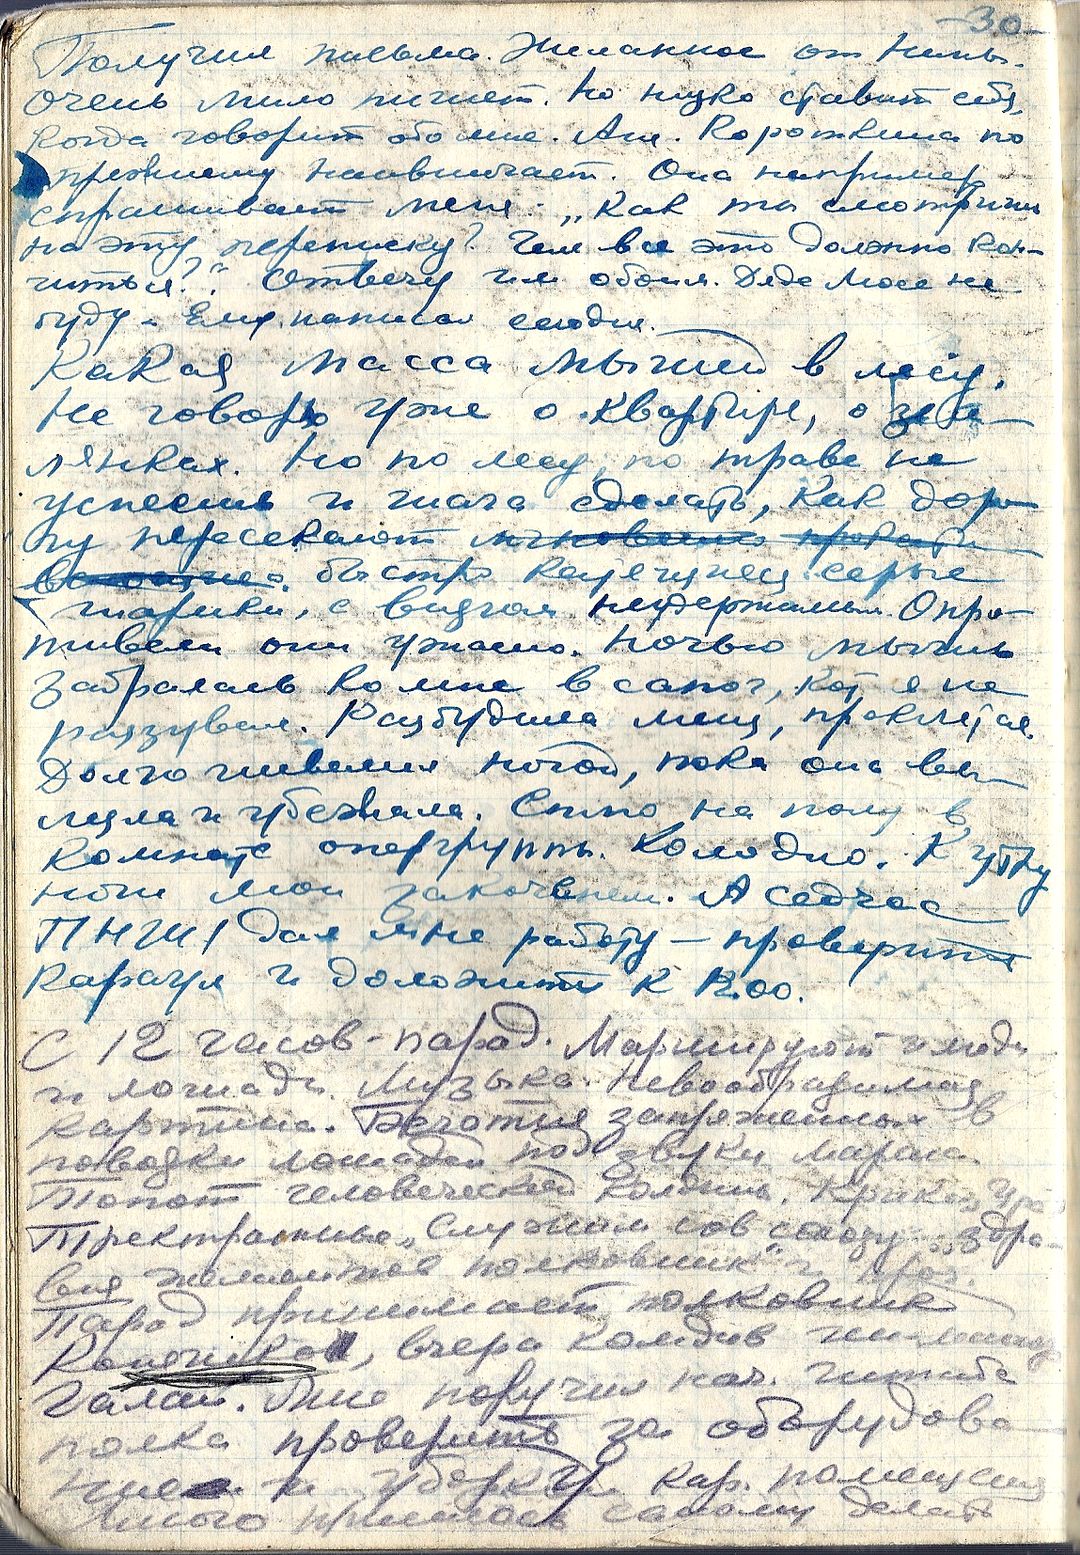 -30-
Получил письма. Желанное от Нины.
Очень мило пишет. Но низко ставит себя,
когда говорит обо мне. Аня. Короткина по
прежнему наввинчает. Она например
спрашивает меня: „Как ты смотришь
на эту переписку? Чем все это должно кон-
читься?". Отвечу им обоим. Дяде Мосе не
буду. Ему написал сегодня.
Какая масса мышей в лесу.
Не говорю уже о квартире, о зем-
лянках. Но по лесу, по траве не
успеешь и шага сделать, как доро-
гу пересекают мгновенно
быстро катящиеся серые
шарики, с визгом недержимым. Опро-
тивели они ужасно. Ночью мышь
забралась ко мне в сапог, кот. я не
раззувал. Разбудила меня, проклятая.
Долго шевелил ногой, пока она вы-
лезла и убежала. Сплю на полу в
комнате опергруппы. Холодно. К утру
ноги мои закоченели. А сейчас
ПНШ1 дал мне работу — проверить
караул и доложить к 12.00.
С 12 часов - парад. Маршируют и люди
и лошади. Музыка. Невообразимая
картина. Беготня запряженных в
повозки лошадей под звуки марша.
Топот человеческой колонны. Крики „Ура",
Троекратные „Служим сов. союзу", „Здра-
вия желаем тов полковник" и проч.
Парад принимает полковник
вчера комдив
Галай. Мне поручил нач. штаба
полка проверить за оборудова-
нием и уборкой кар. помещения
Много пришлось самому делать